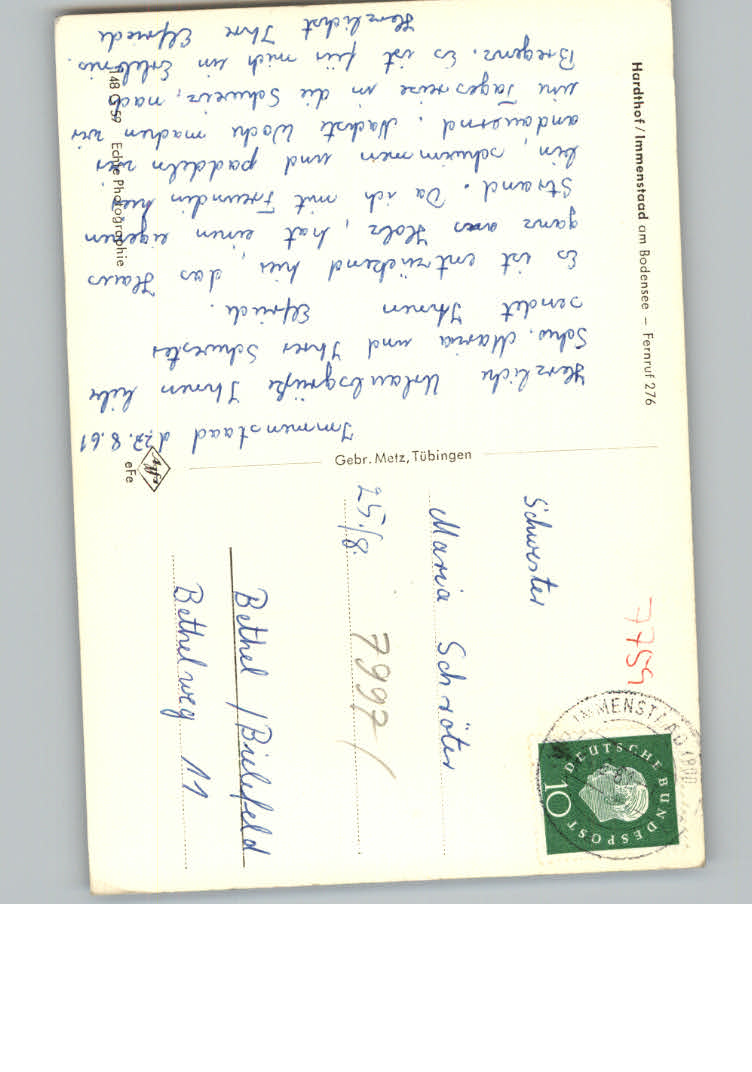 Hardthof / Immenstaad am Bodensee – Fernruf 276
Immenstaad d. 22.8.61
Herzliche Urlaubsgrüße Ihnen liebe
Schw. Maria und Ihrer Schwester
sendet Ihnen Elfriede.
Es ist entzückend hier, das Haus
ganz aus Holz, hat einen eigenen
Strand. Da ich mit Freundin hier
bin, schwimmen und paddeln wir
andauernd. Nächste Woche machen wir
eine Tagesreise in die Schweiz, nach
Bregenz. Es ist für mich ein Erlebnis.
Herzlichst Ihre Elfriede
148 G 59 Echte Photographie
Gebr. Metz, Tübingen
eFe
7759
IMMENSTAAD
DEUTSCHE BUNDESPOST
10
Schwester
Maria Schröter
25./8.
7997/
Bethel / Bielefeld
Bethelweg 11